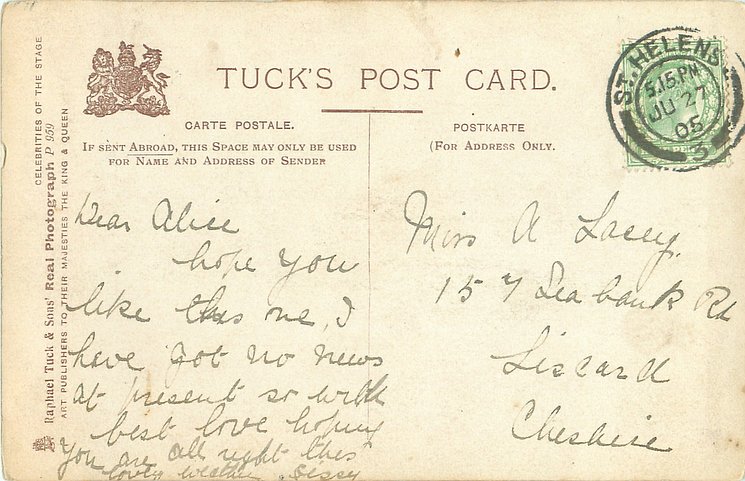 TUCK'S POST CARD.
CARTE POSTALE.
IF SENT ABROAD, THIS SPACE MAY ONLY BE USED
FOR NAME AND ADDRESS OF SENDER
POSTKARTE
(FOR ADDRESS ONLY.
ST. HELENS
5.15 PM
JU 27
05
3
CELEBRITIES OF THE STAGE
Raphael Tuck & Sons' Real Photograph P 959
ART PUBLISHERS TO THEIR MAJESTIES THE KING & QUEEN
Dear Alice
hope you
like this one, I
have got no news
at present so with
best love hoping
you are all right this
lovely weather. Sissy
Miss A Lacey,
157 Seabank Rd
Liscard
Cheshire